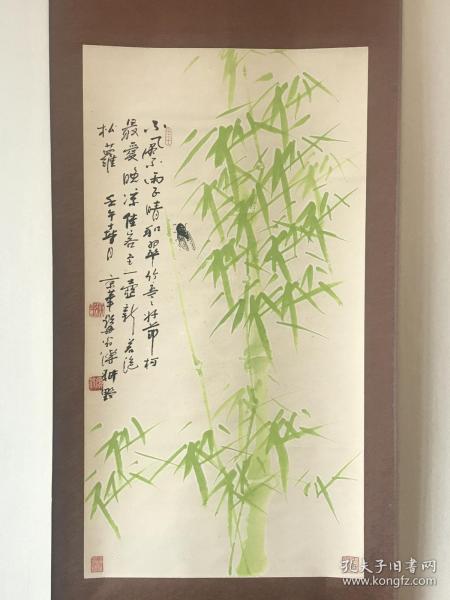 不風不雨正晴和翠竹亭亭好節柯
最愛晚凉佳客至一壺新茗泡
松蘿 壬午春月 京華
孔夫子旧书网
www.kongfz.com